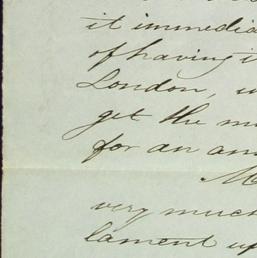 it immedia
of having i
London, w
get the m
for an am
M
very much
lament up